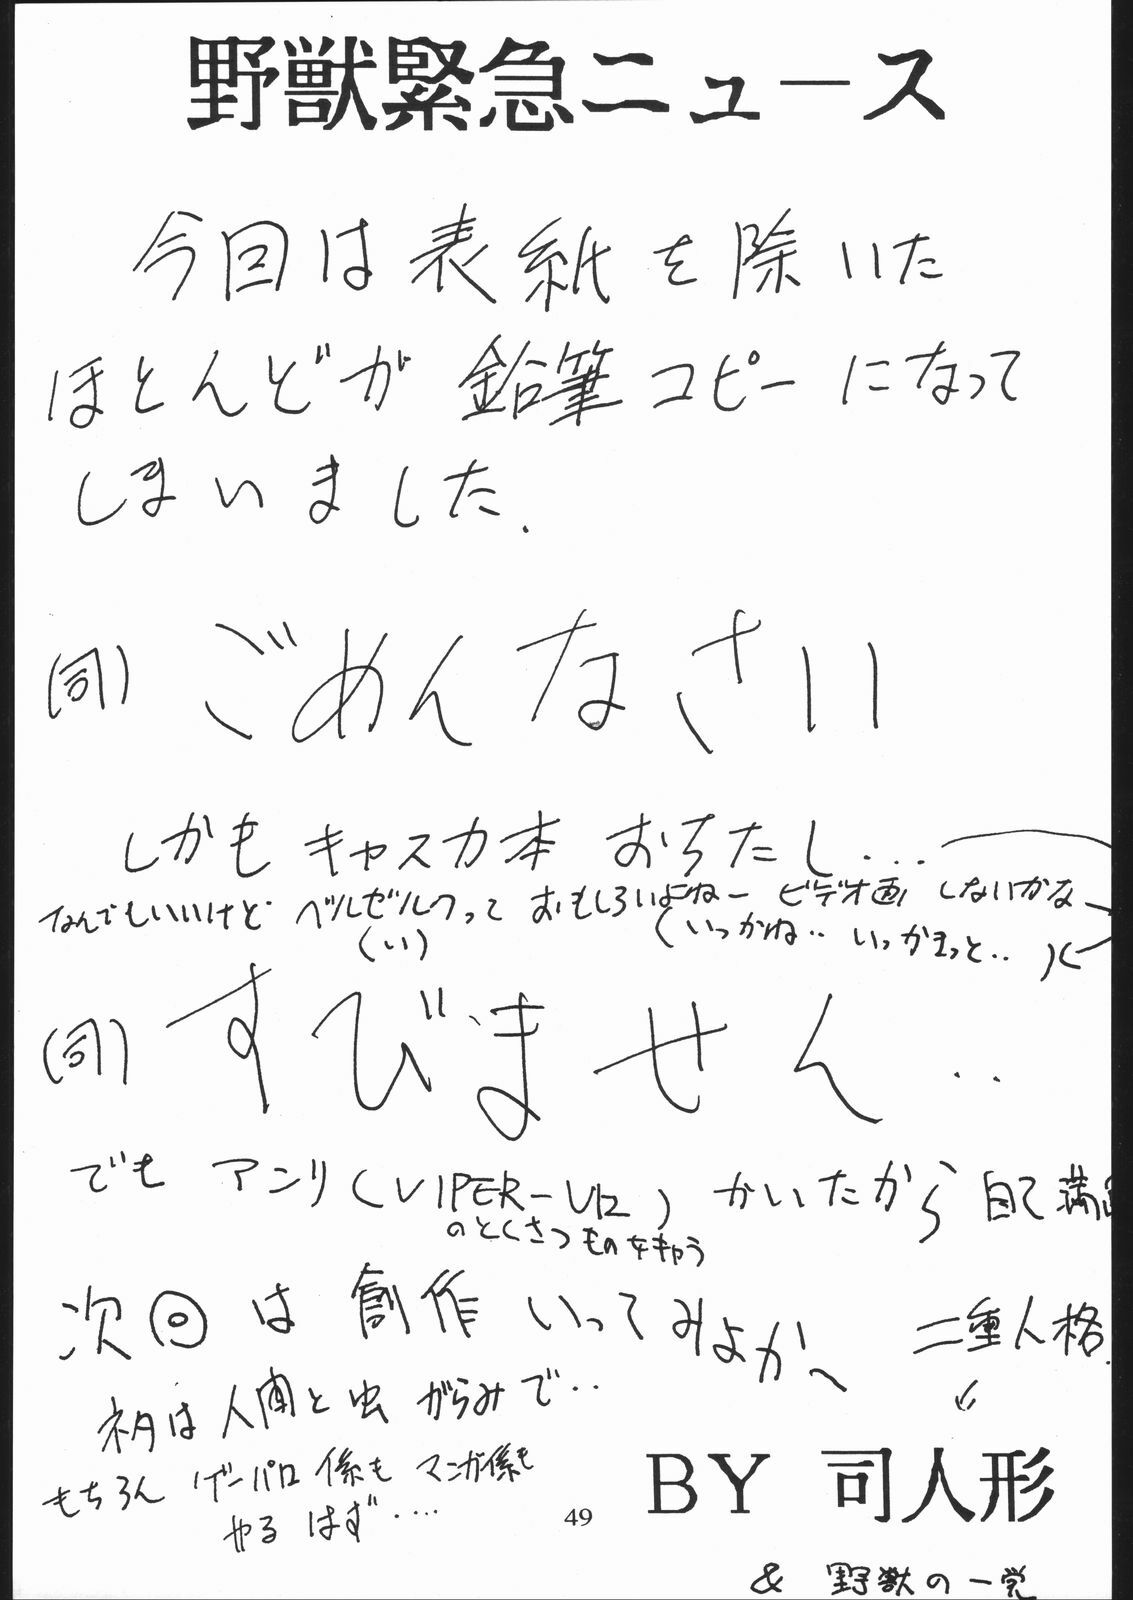 野獣緊急ニュース
今回は表紙を除いた
ほとんどが鉛筆コピーになって
しまいました.
(司) ごめんなさい
しかもキャスカ本おちたし...
なんでもいいけど ベルセルクって おもしろいよねー ビデオ画 しないかな
(い) (いっかね‥ いっかまっと‥
(司) すびません‥
でも アンリ (VIPER-V12) かいたから 自己満足
のとくさつものをキャラ
次回は創作いってみよか〜 二重人格.
ネタは人間と虫がらみで‥
もちろん ゲーパロ係も マンガ係も
やるはず‥‥
BY 司人形
49
& 野獣の一党